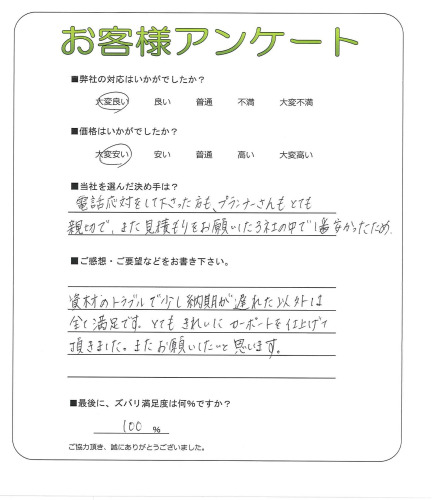 お客様アンケート
■弊社の対応はいかがでしたか？
大変良い 良い 普通 不満 大変不満
■価格はいかがでしたか？
大変安い 安い 普通 高い 大変高い
■当社を選んだ決め手は？
電話応対をして下さった方も、プランナーさんもとても
親切で、また見積もりをお願いした3社の中で1番安かったため.
■ご感想・ご要望などをお書き下さい。
資材のトラブルで少し納期が遅れた以外は
全て満足です。とてもきれいにカーポートを仕上げて
頂きました。またお願いしたいと思います。
■最後に、ズバリ満足度は何%ですか？
100 %
ご協力頂き、誠にありがとうございました。